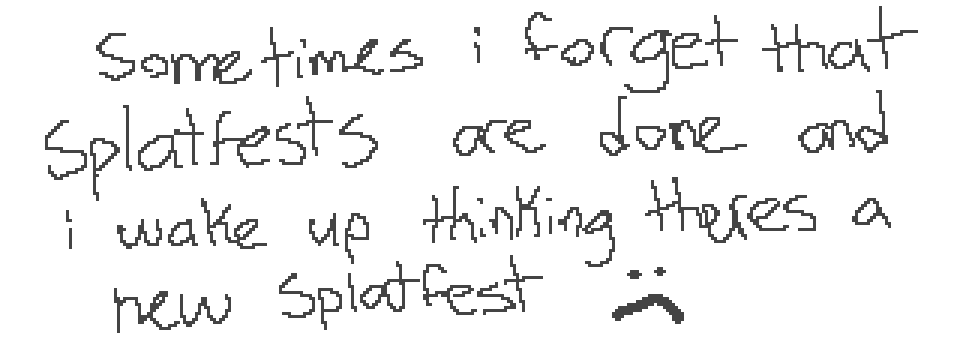 Sometimes i forget that
Splatfests are done and
i wake up thinking theres a
new Splatfest :(